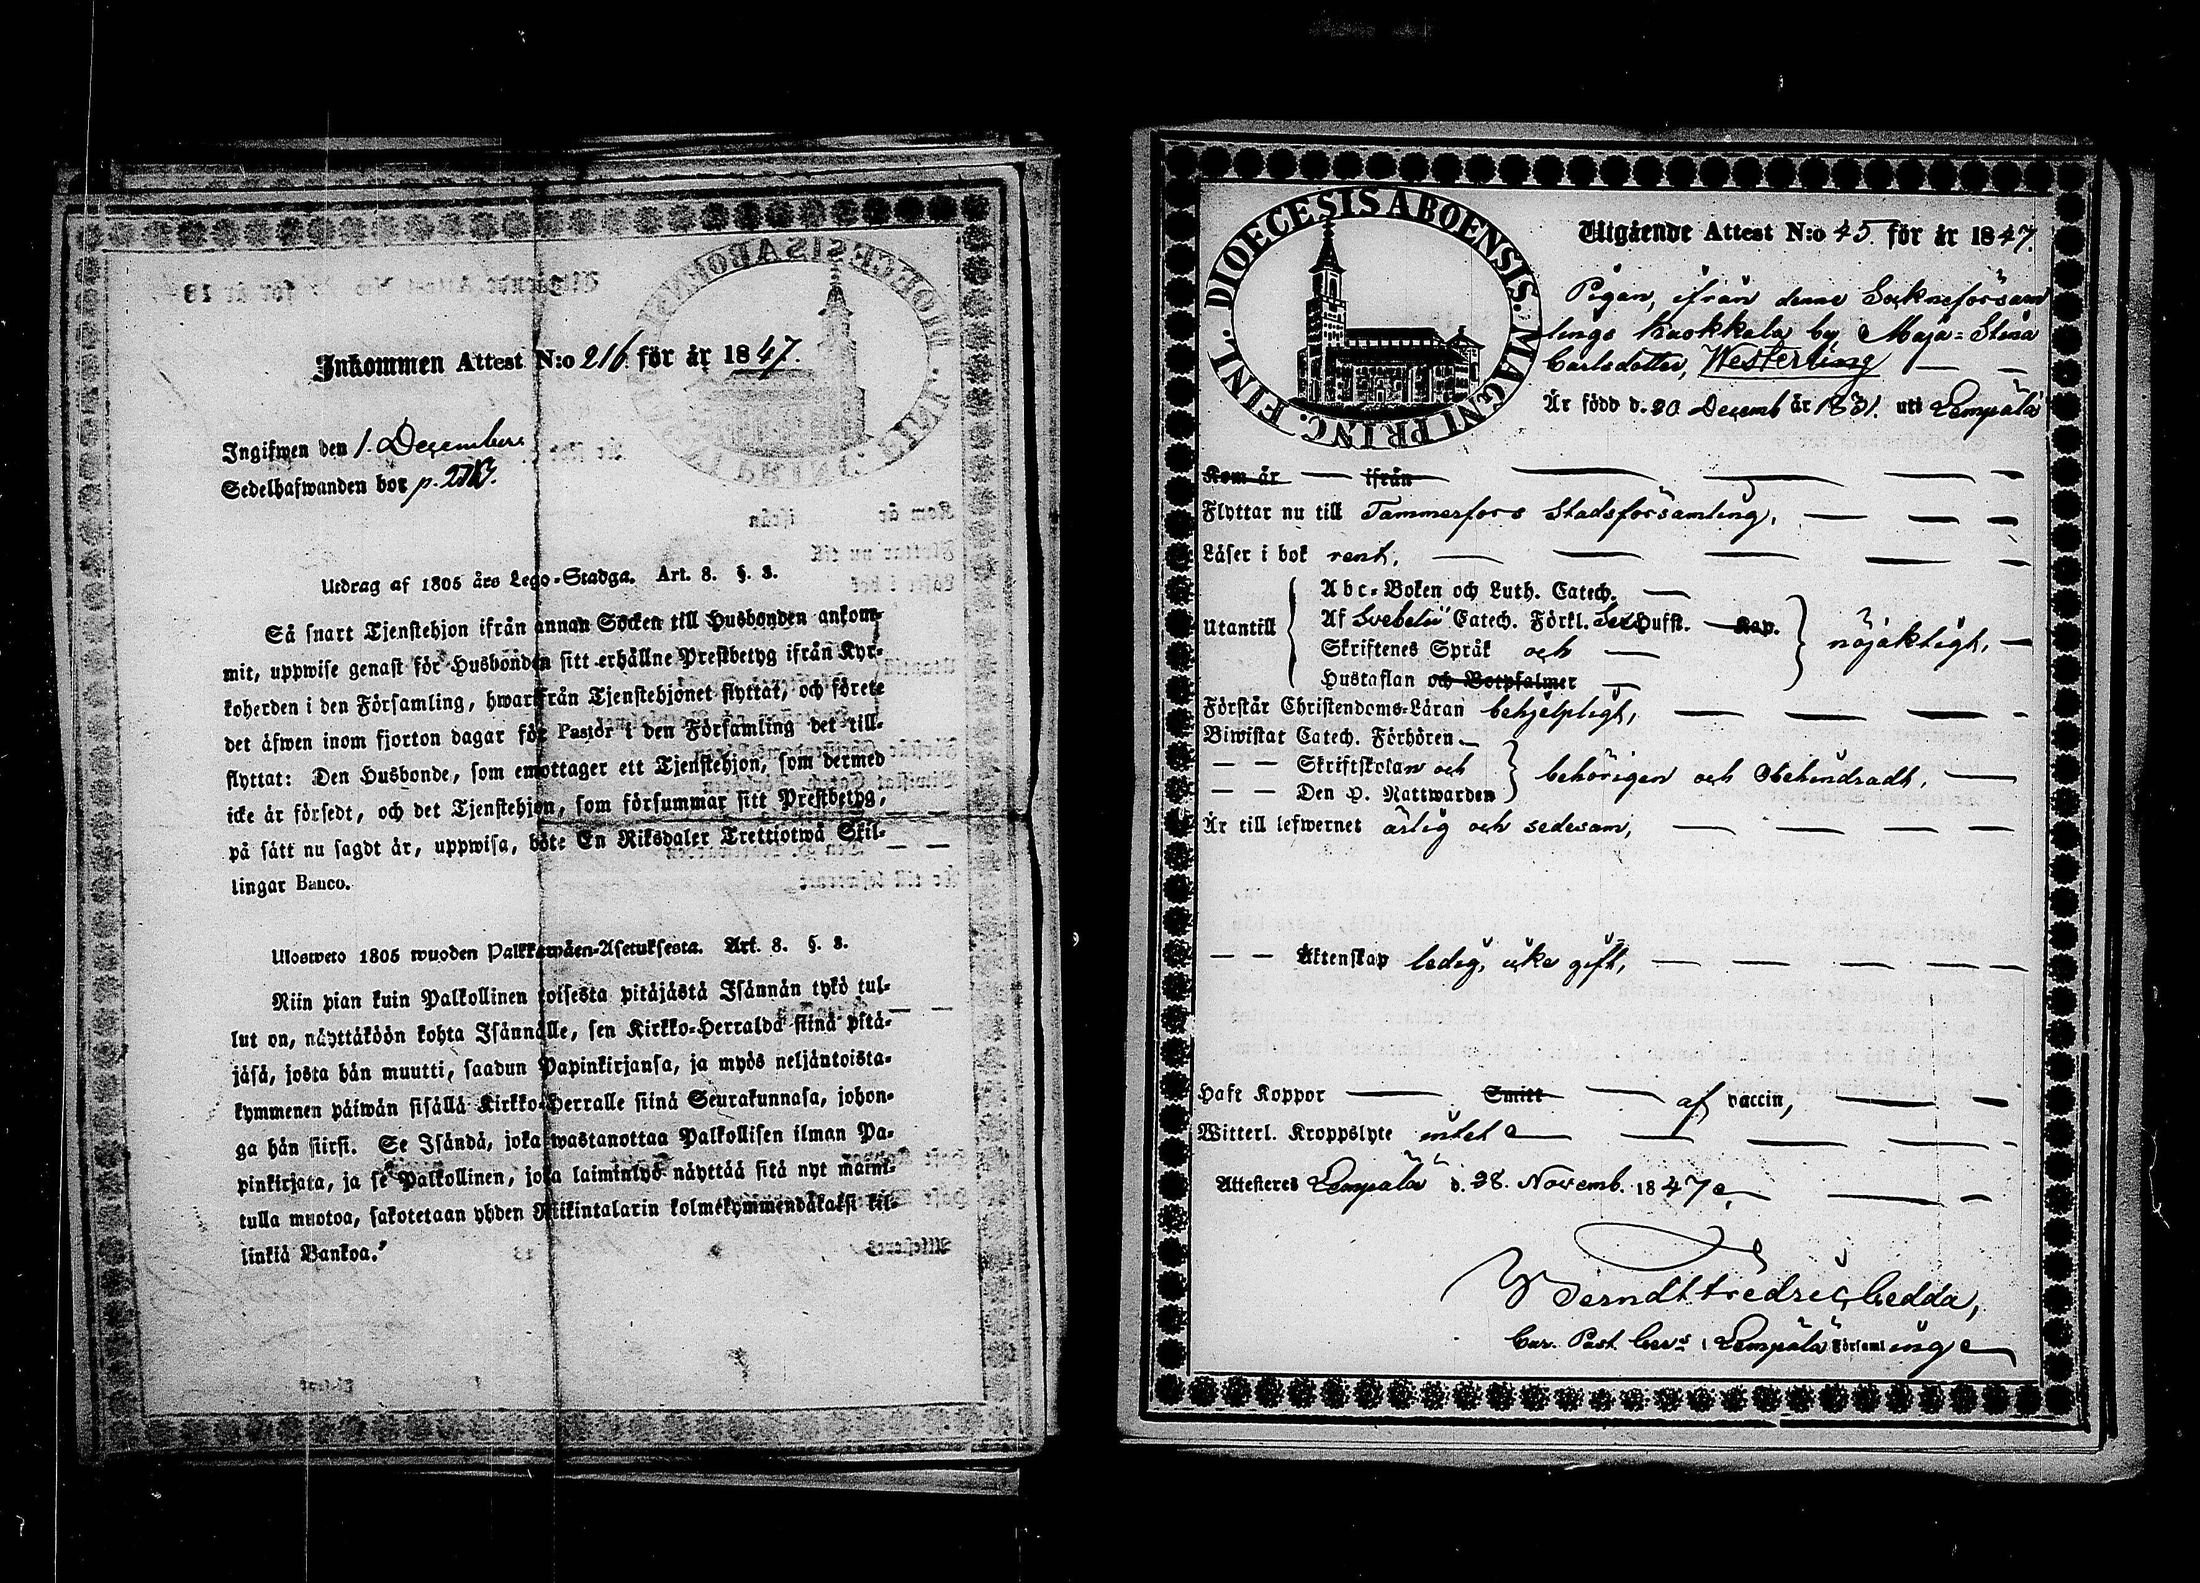 Inkommen Attest N:o 216 för år 1847.
Ingifwen den 1. December
Sedelhafwanden bor p.
Utdrag af 1805 års Lego-Stadga. Art. 8. §. 3.
Så snart Tjenstehjon ifrån annan Socken till Husbonden ankom-
mit, uppwise genast för Husbonden sitt erhållne Prestbetyg ifrån Kyr-
koherden i den Församling, hwarifrån Tjenstehjonet flyttat, och förete
det äfwen inom fjorton dagar för Pastor i den Församling det till-
flyttat: Den Husbonde, som emottager ett Tjenstehjon, som dermed
icke är försedt, och det Tjenstehjon, som försummar sitt Prestbetyg,
på sätt nu sagdt är, uppwisa, böte En Riksdaler Trettiotwå Skil-
lingar Banco.
Ulosweto 1805 wuoden Palkkawäen-Asetuksesta. Art. 8. §. 3.
Niin pian kuin Palkollinen toisesta pitäjästä Isännän tykö tul-
lut on, näyttäköön kohta Isännälle, sen Kirkko-Herralda siinä pitä-
jäsä, josta hän muutti, saadun Papinkirjansa, ja myös neljäntoista-
kymmenen päiwän sisällä Kirkko-Herralle siinä Seurakunnasa, johon-
ga hän siirsi. Se Isändä, joka wastanottaa Palkollisen ilman Pa-
pinkirjata, ja se Palkollinen, joka laiminlyö näyttää sitä nyt maini-
tulla muotoa, sakotetaan yhden Riikintalarin kolmekymmendäkaksi kil-
linkiä Bankoa.
DIOECESIS ABOENSIS. MAGNI PRINC. FINL.
Utgående Attest N:o 45. för år 1847.
Pigan, ifrån denne Sockneförsam
lings Kuokkala by Maja-Stina
Carlsdotter, Westerling
Är född d. 20 Decemb år 1831. uti Lempälä
Kom år ifrån
Flyttar nu till Tammerfors Stadsförsamling,
Läser i bok rent,
Abc-Boken och Luth. Catech.
Utantill Af Svebelii Catech. Förkl. Sex Hufst. Kap. nöjaktigt,
Skriftenes Språk och
Hustaflan och Botpsalmer
Förstår Christendoms-Läran behjelpligt,
Biwistat Catech. Förhören
Skriftskolan och behörigen och Obehindradt,
Den H. Nattwarden
Är till lefwernet ärlig och sedesam,
Äktenskap ledig, icke gift,
Haft Koppor Smitt af vaccin,
Witterl. Kroppslyte intet
Attesteres Lempälä d. 28. Novemb. 1847
Berndt Fredric Gedda,
Cur. Past. i Lempälä Församling